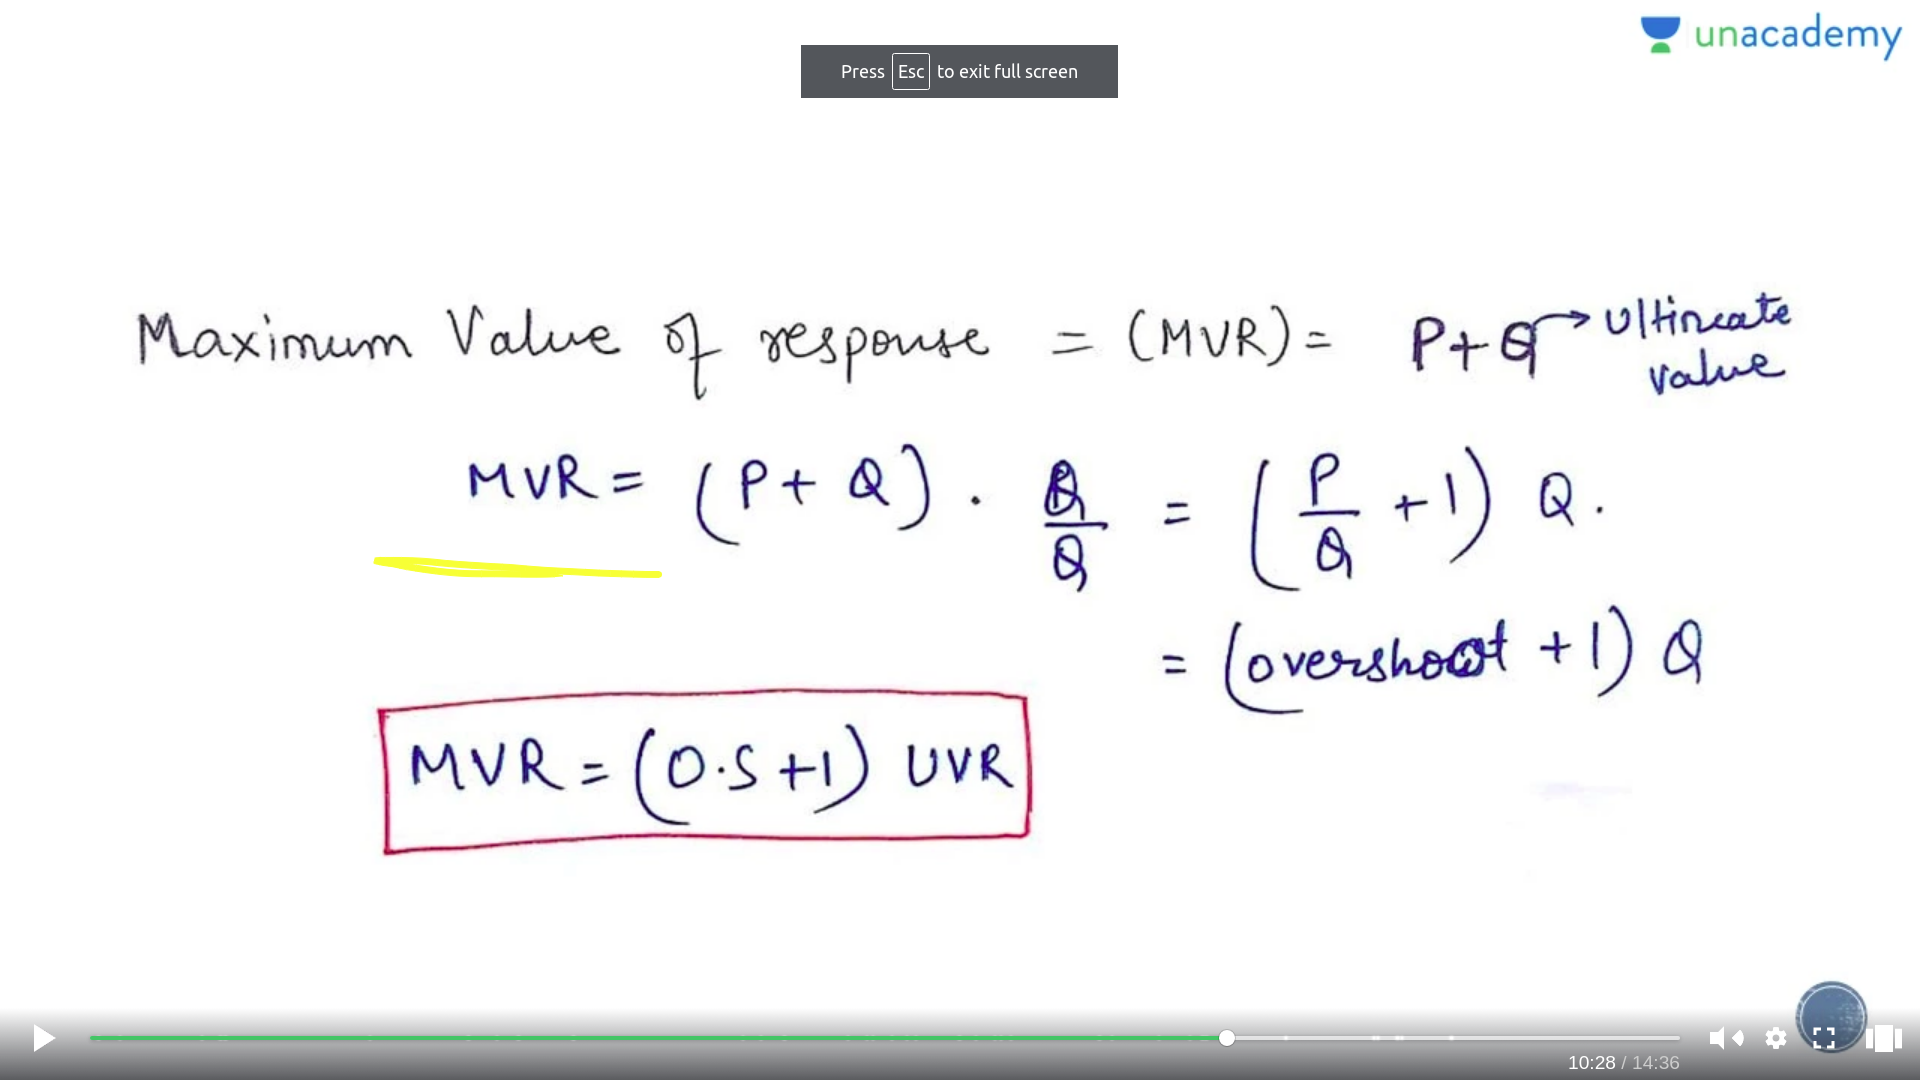 unacademy
Press Esc to exit full screen
Maximum Value of response = (MVR) = P+Q → Ultimate value
MVR = (P + Q) . Q/Q = (P/Q + 1) Q.
= (overshoot + 1) Q
MVR = (O.S + 1) UVR
10:28 / 14:36